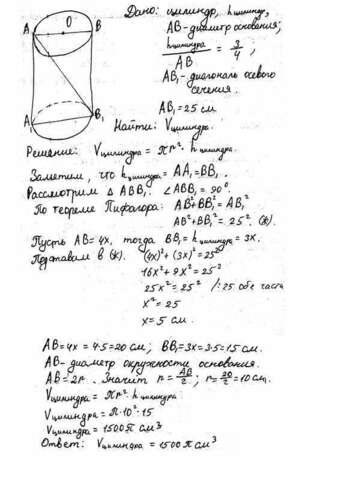 Дано: цилиндр, hцилиндр,
A O B
AB - диаметр основания;
hцилиндра / AB = 3/4 ;
AB₁ - диагональ осевого
сечения.
A₁ B₁
AB₁ = 25 см
Найти: Vцилиндра.
Решение: Vцилиндра = πr² · hцилиндра.
Заметим, что hцилиндра = AA₁ = BB₁.
Рассмотрим △ ABB₁. ∠ABB₁ = 90°.
По теореме Пифагора: AB² + BB₁² = AB₁²
AB² + BB₁² = 25². (*).
Пусть AB = 4x, тогда BB₁ = hцилиндра = 3x.
Подставим в (*). (4x)² + (3x)² = 25²
16x² + 9x² = 25²
25x² = 25² /:25 обе части
x² = 25
x = 5 см.
AB = 4x = 4·5 = 20 см; BB₁ = 3x = 3·5 = 15 см.
AB - диаметр окружности основания.
AB = 2r. Значит r = AB/2; r = 20/2 = 10 см.
Vцилиндра = πr² · hцилиндра
Vцилиндра = π·10²·15
Vцилиндра = 1500π см³
Ответ: Vцилиндра = 1500π см³